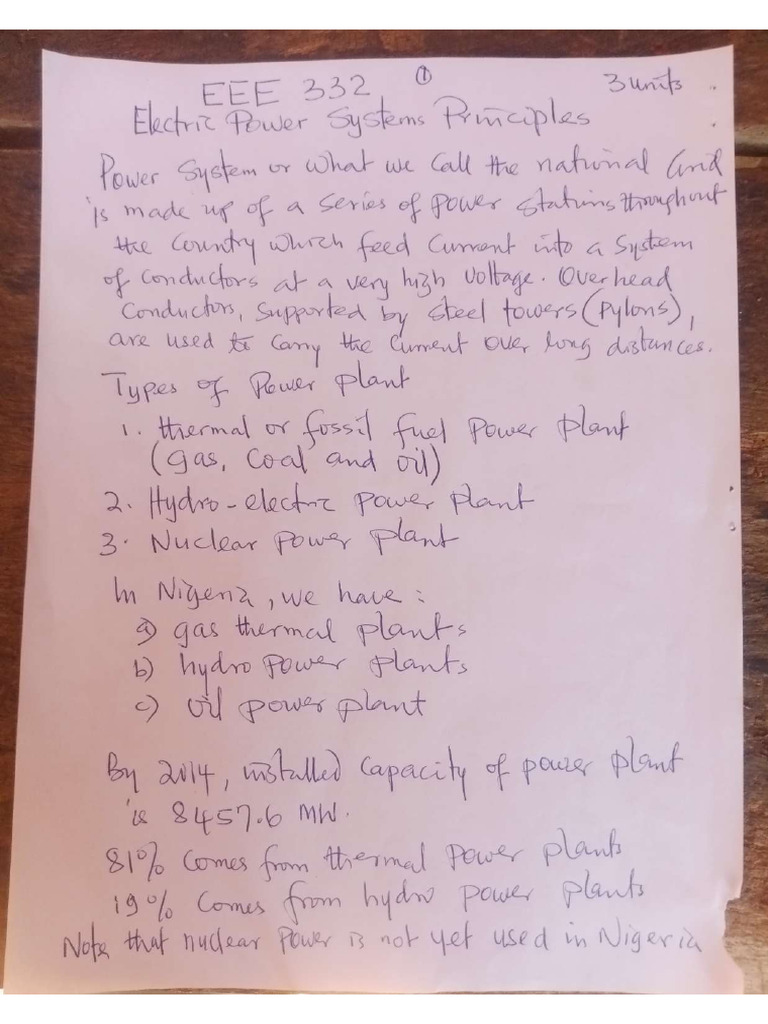 EEE 332 ① 3 units
Electric Power Systems Principles
Power System or what we call the national Grid
is made up of a series of power stations throughout
the country which feed current into a system
of conductors at a very high voltage. Overhead
conductors, supported by steel towers (pylons),
are used to carry the current over long distances.
Types of Power plant
1. thermal or fossil fuel power plant
(gas, coal and oil)
2. Hydro-electric power plant
3. Nuclear power plant
In Nigeria, we have:
a) gas thermal plants
b) hydro power plants
c) oil power plant
By 2014, installed capacity of power plant
is 8457.6 MW.
81% comes from thermal power plants
19% comes from hydro power plants
Note that nuclear power is not yet used in Nigeria